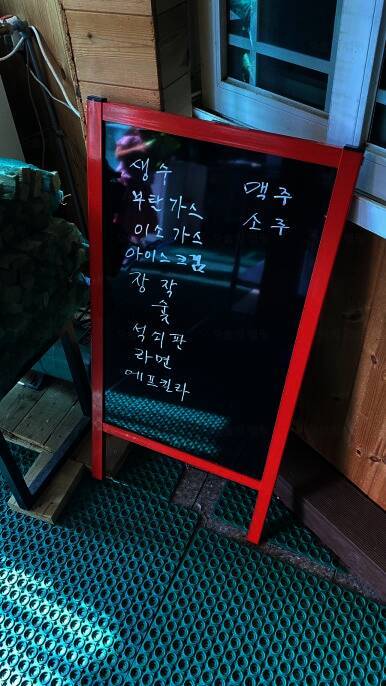 생수
부탄가스
이소가스
아이스크림
장작
숯
석쇠판
라면
에프킬라
맥주
소주